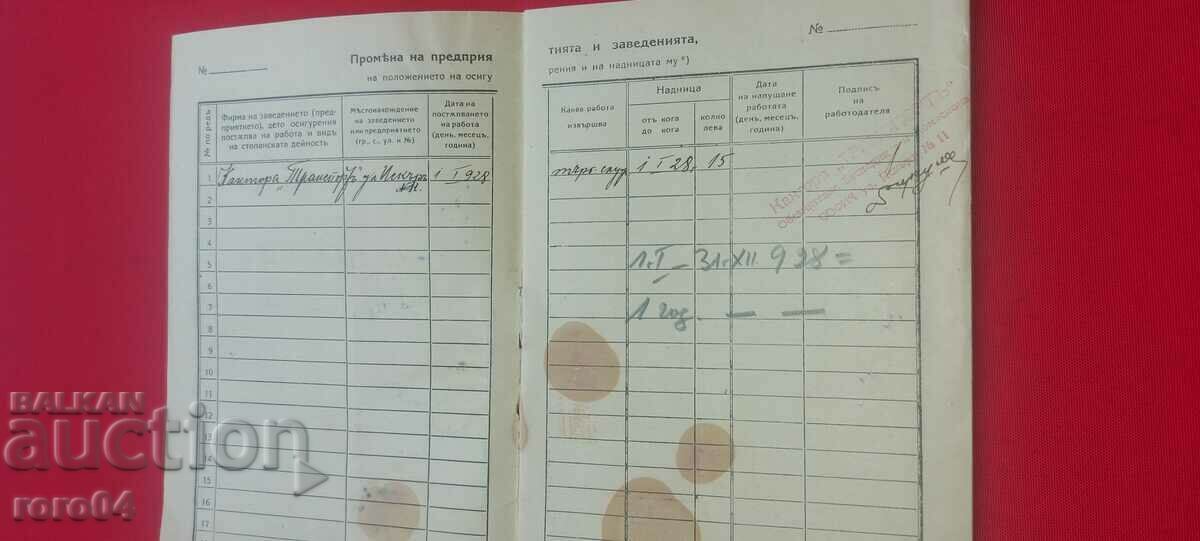 №
Промѣна на предприя
на положението на осигу
№ по редъ
Фирма на заведението (пред-
приятието), дето осигурения
постѫпва на работа и видъ
на стопанската дейность
Мѣстонахождение
на заведението
или предприятието
(гр., с., ул. и №)
Дата на
постѫпването
на работа
(день, месецъ,
година)
1
Кантора „Транспортъ" ул. Искъръ
1 I 928
2
3
4
5
6
7
8
9
10
11
12
13
14
15
16
17
№
тията и заведенията,
рения и на надницата му*)
Каква работа
извършва
Надница
отъ кога
до кога
колко
лева
Дата
на напущане
работата
(день, месецъ,
година)
Подпись
на
работодателя
1 I 28.
15
1.I — 31.XII 928 =
1 год. — —
BALKAN
auction
roro04